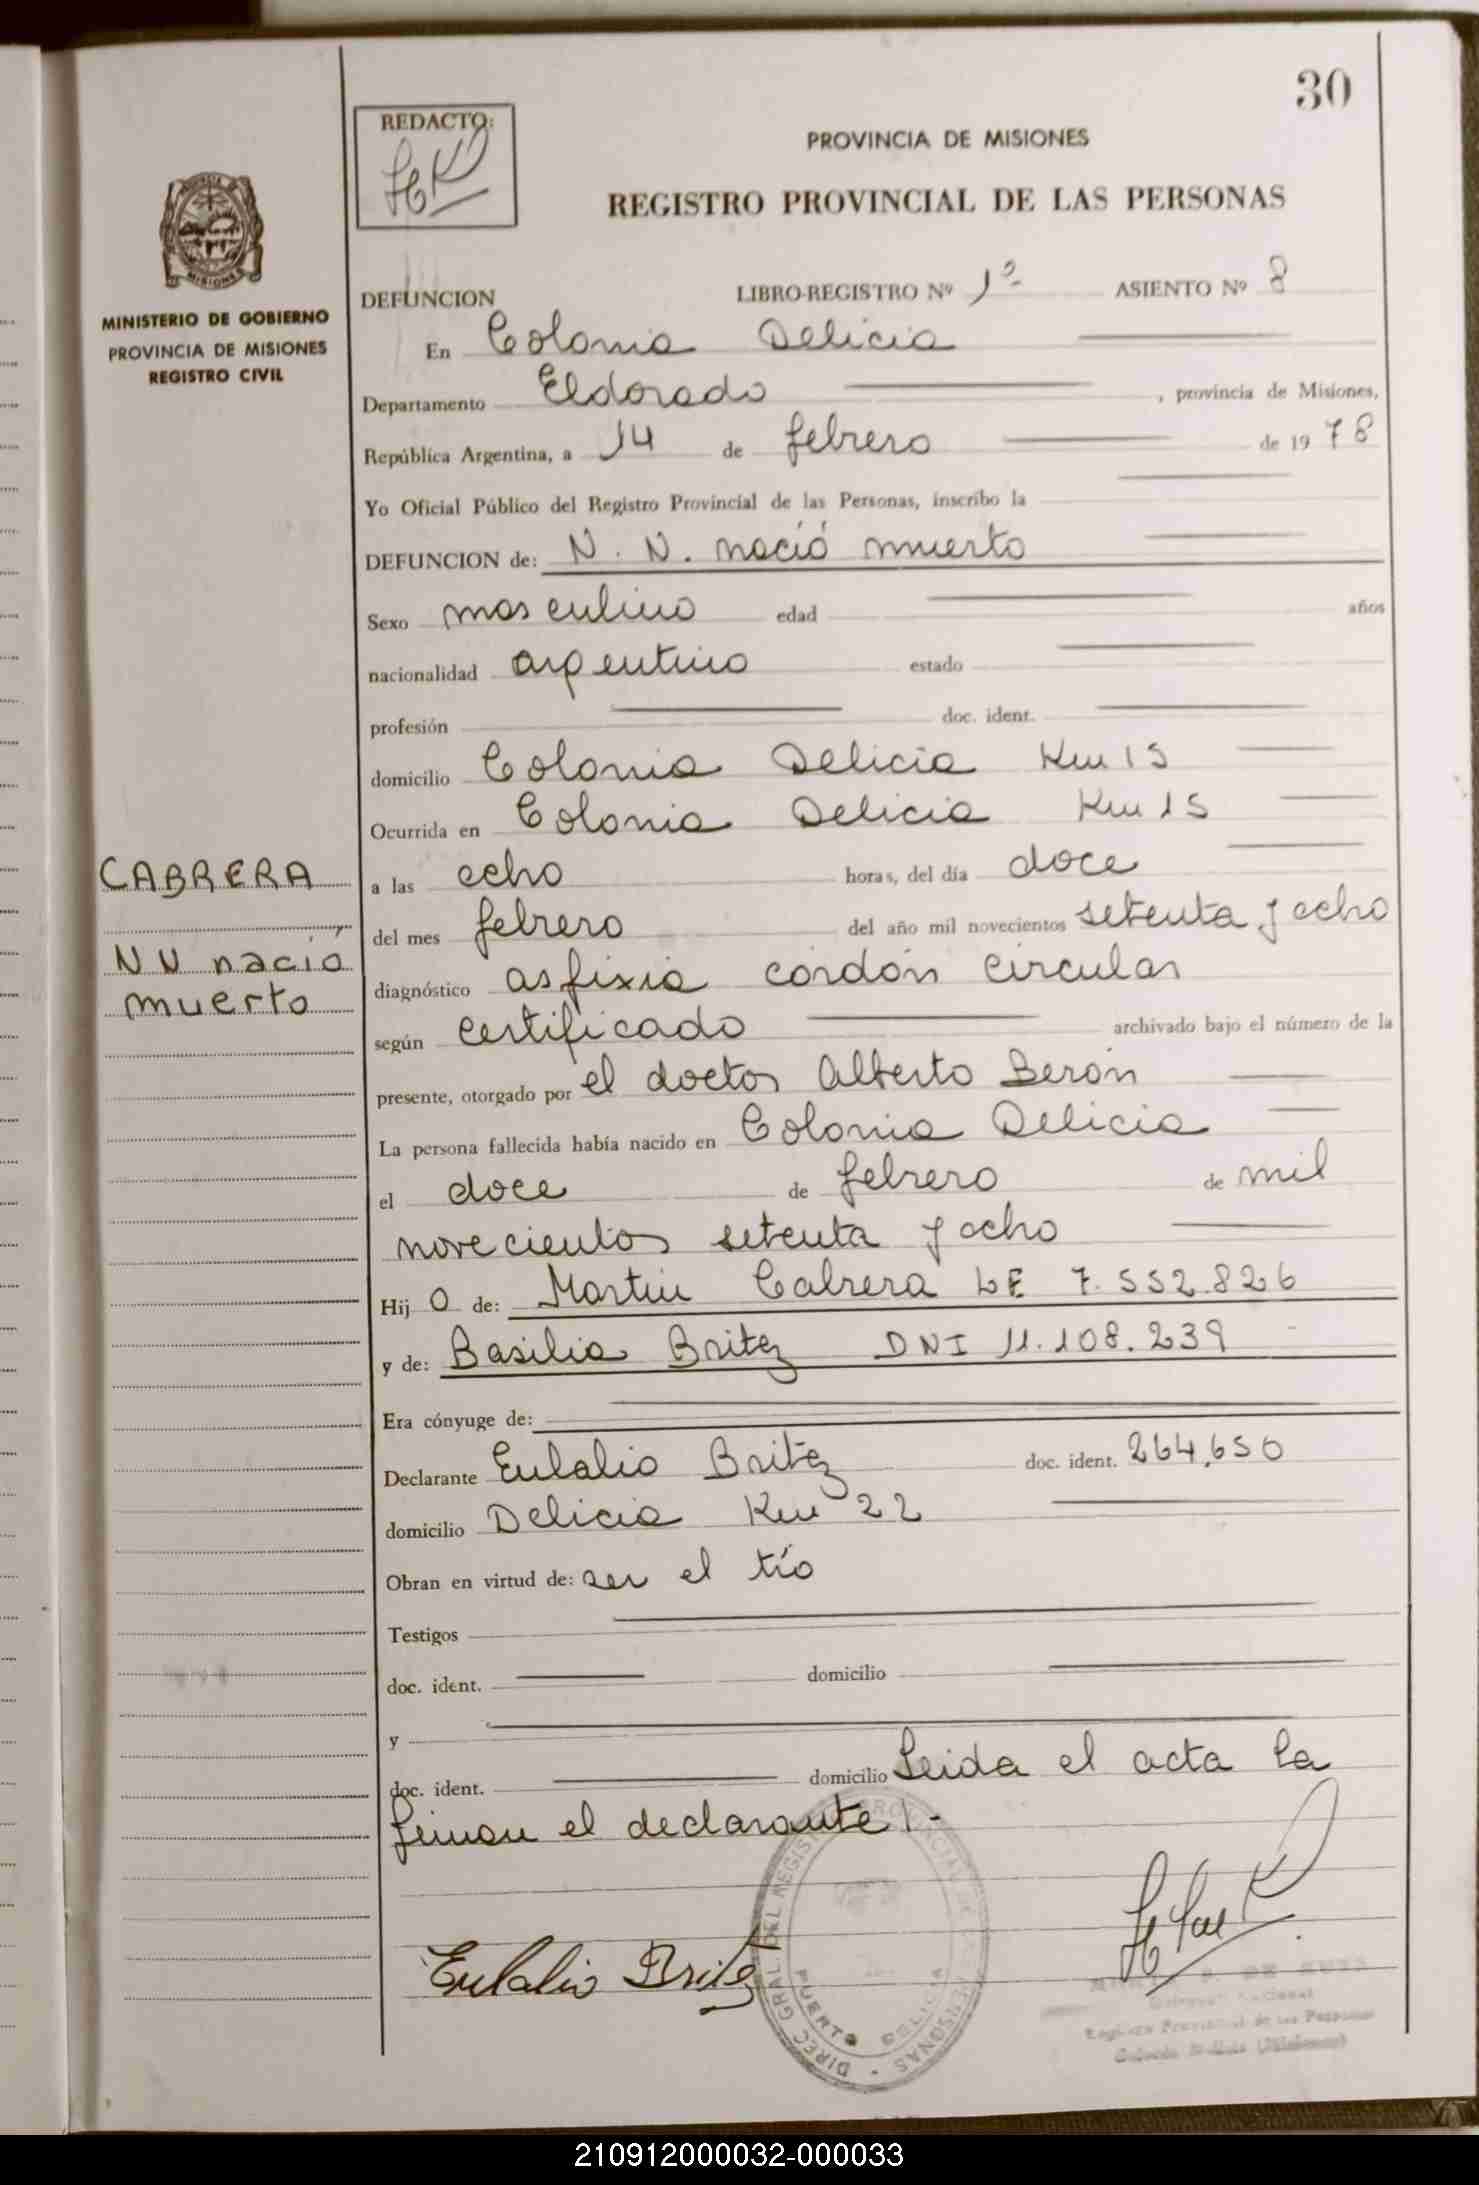 30
REDACTO:
PROVINCIA DE MISIONES
REGISTRO PROVINCIAL DE LAS PERSONAS
MISIONES
MINISTERIO DE GOBIERNO
PROVINCIA DE MISIONES
REGISTRO CIVIL
DEFUNCION LIBRO-REGISTRO Nº 1º ASIENTO Nº 8
En Colonia Delicia
Departamento Eldorado , provincia de Misiones,
República Argentina, a 14 de febrero de 1978
Yo Oficial Público del Registro Provincial de las Personas, inscribo la
DEFUNCION de: N. N. nació muerto
Sexo masculino edad años
nacionalidad argentino estado
profesión doc. ident.
domicilio Colonia Delicia Km 15
Ocurrida en Colonia Delicia Km 15
CABRERA
N N nació
muerto
a las ocho horas, del día doce
del mes febrero del año mil novecientos setenta y ocho
diagnóstico asfixia cordón circular
según certificado archivado bajo el número de la
presente, otorgado por el doctor Alberto Berón
La persona fallecida había nacido en Colonia Delicia
el doce de febrero de mil
novecientos setenta y ocho
Hij o de: Martin Cabrera LE 7.552.826
y de: Basilia Britez DNI 11.108.239
Era cónyuge de:
Declarante Eulalio Britez doc. ident. 264.650
domicilio Delicia Km 22
Obran en virtud de: ser el tío
Testigos
doc. ident. domicilio
y
doc. ident. domicilio Leida el acta la
firman el declarante.-
Eulalio Britez
DIREC GRAL DEL REGIST PROVINCIAL DE LAS PERSONAS - PUERTO DELICIA
Registro Provincial de las Personas